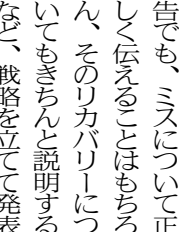 告でも、ミスについて正
しく伝えることはもちろ
ん、そのリカバリーにつ
いてもきちんと説明する
など、戦略を立てて発表